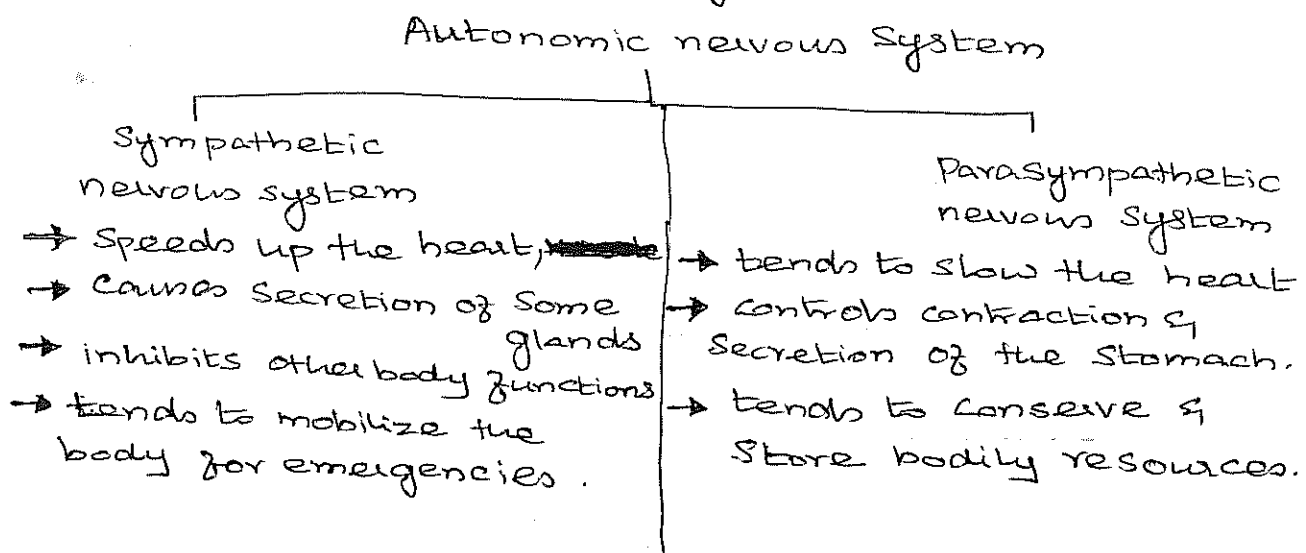 Autonomic nervous System
Sympathetic
nervous system
→ Speeds up the heart,
→ Causes Secretion of Some
glands
→ inhibits other body functions
→ tends to mobilize the
body for emergencies.
Parasympathetic
nervous System
→ tends to slow the heart
→ controls contraction &
Secretion of the Stomach.
→ tends to conserve &
Store bodily resources.